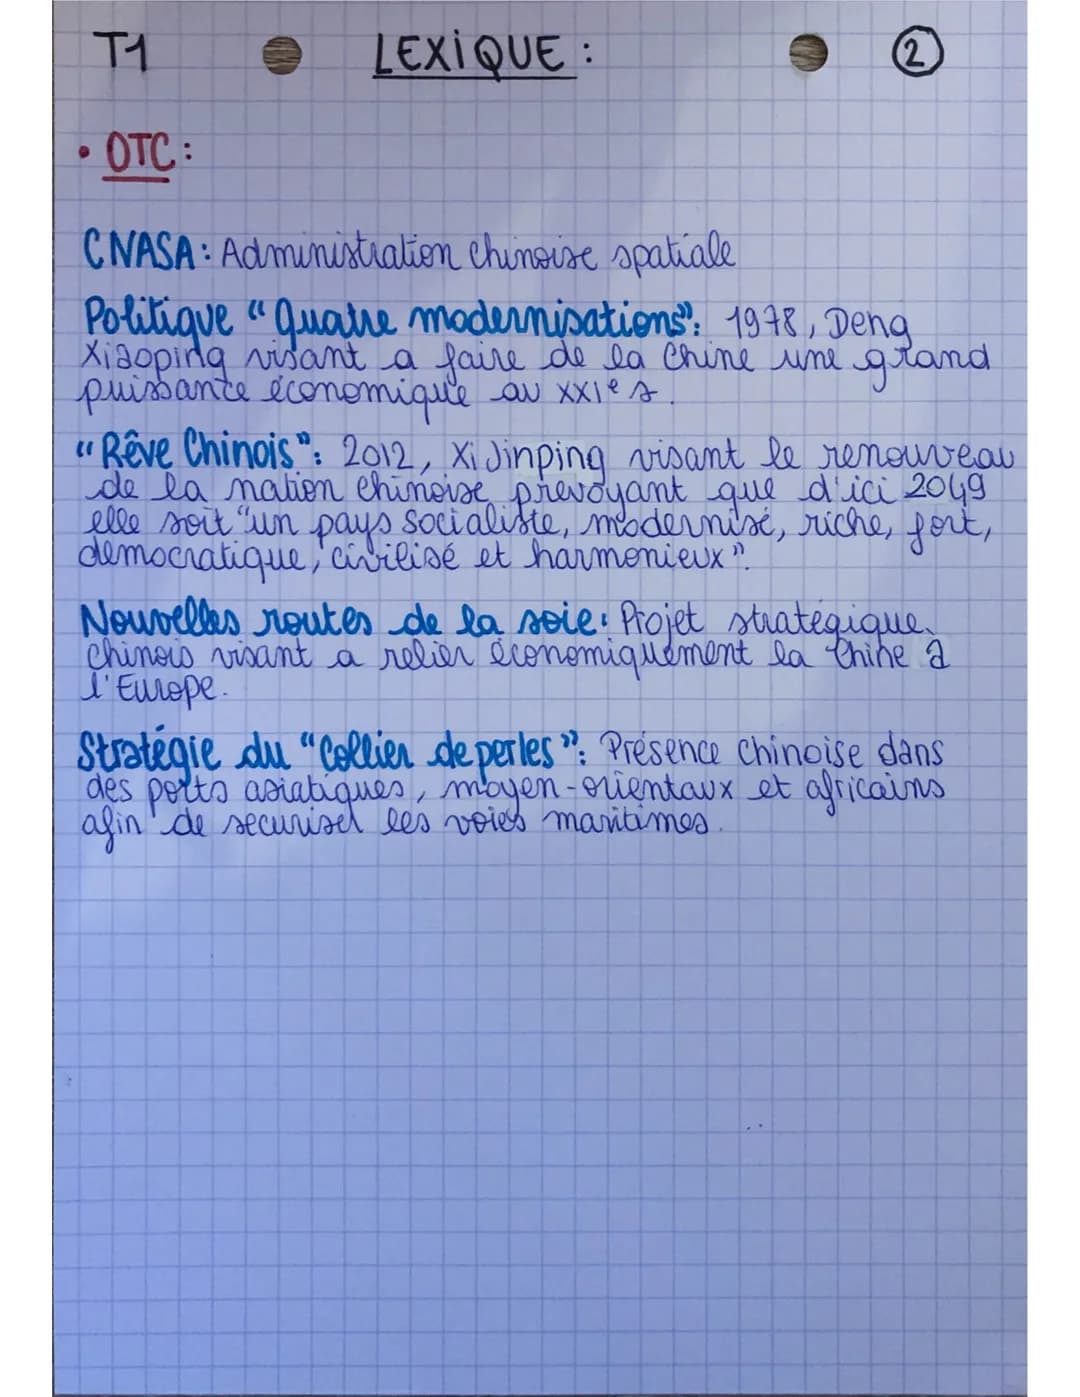 T1 LEXIQUE : 2
• OTC :
CNASA : Administration chinoise spatiale
Politique "Quatre modernisations" : 1978, Deng
Xiaoping visant a faire de la Chine une grand
puissante économique au XXIe s.
"Rêve Chinois" : 2012, Xi Jinping visant le renouveau
de la nation chinoise prévoyant que d'ici 2049
elle soit "un pays socialiste, modernisé, riche, fort,
democratique, civilisé et harmonieux".
Nouvelles routes de la soie : Projet stratégique
chinois visant a relier économiquement la Chine à
l'Europe.
Stratégie du "Collier de perles" : Présence chinoise dans
des ports asiatiques, moyen-orientaux et africains
afin de securiser les voies maritimes.